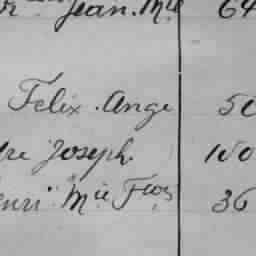 Jean. Mie 64
Felix. Ange 50
Joseph. 100
enri Mie Fçois 36